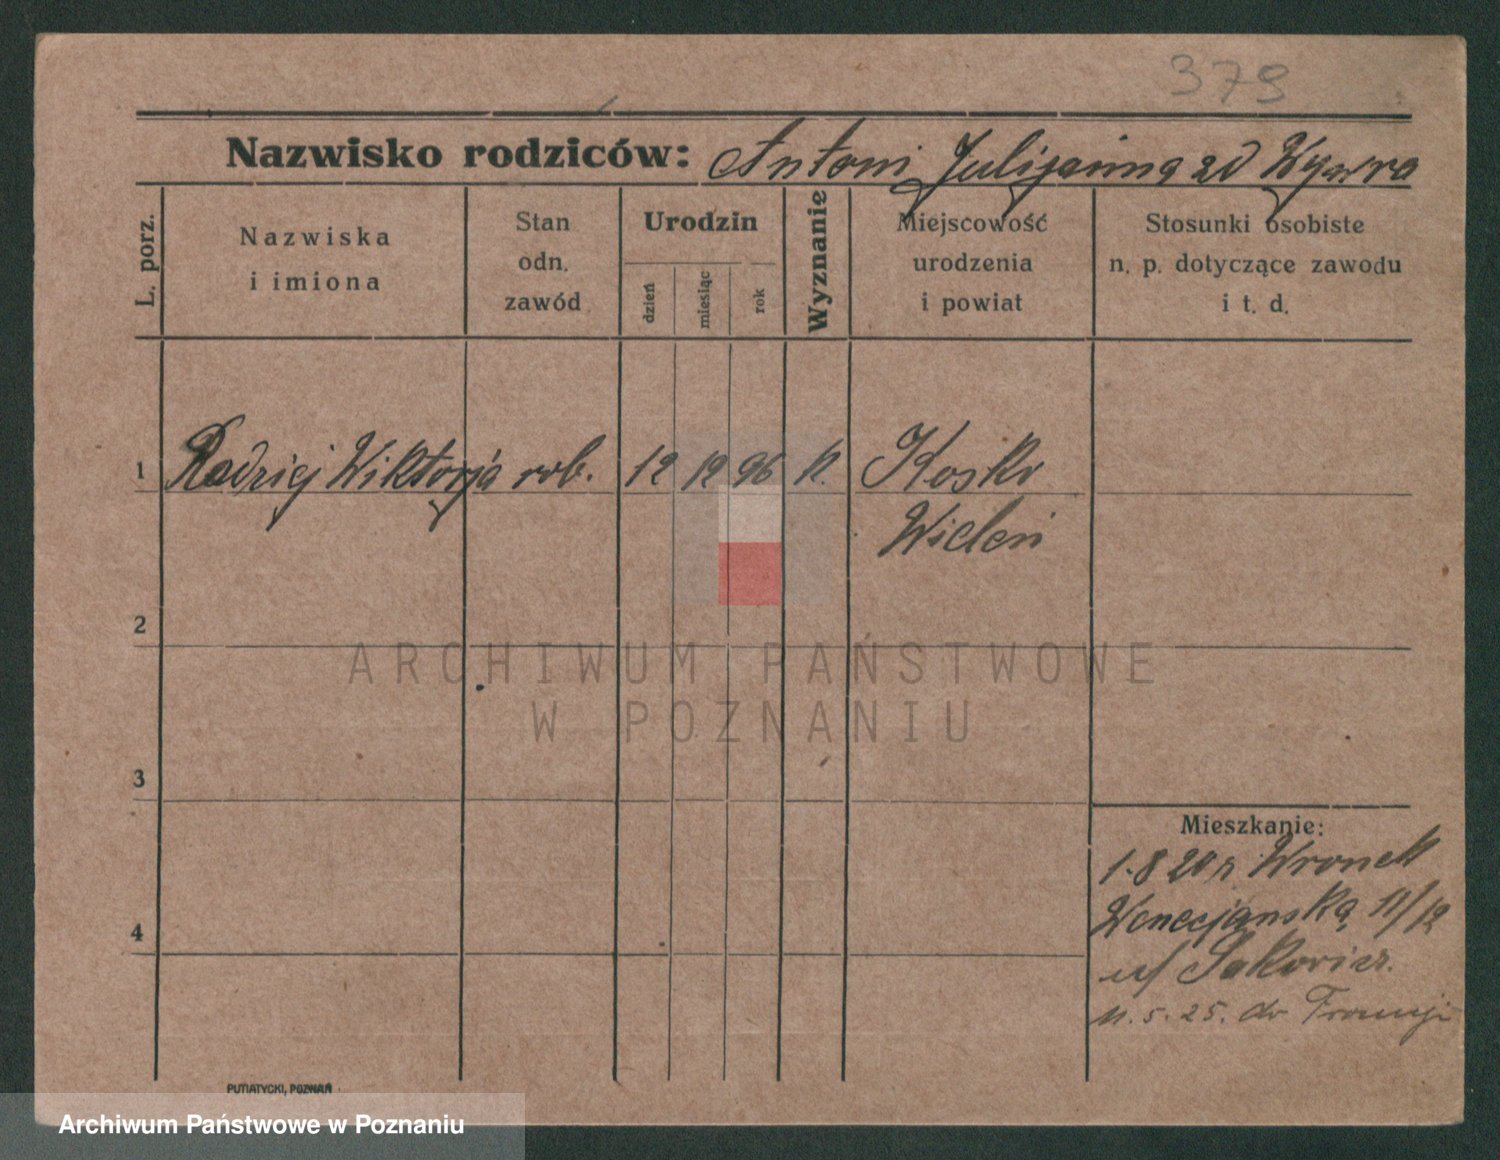 379
Nazwisko rodziców: Antoni Julijanna zd Wywra
L. porz.
Nazwiska
i imiona
Stan
odn.
zawód
Urodzin
dzień
miesiąc
rok
Wyznanie
Miejscowość
urodzenia
i powiat
Stosunki osobiste
n. p. dotyczące zawodu
i t. d.
1 Radziej Wiktorja rob. 12 12 96 K. Rosko
Wieleń
2
ARCHIWUM PAŃSTWOWE
W POZNANIU
3
Mieszkanie:
1.8 20 r Wronek
Wenecjanska 11/12
u/
4
11.5.25. do Francji
PUTIATYCKI, POZNAŃ
Archiwum Państwowe w Poznaniu